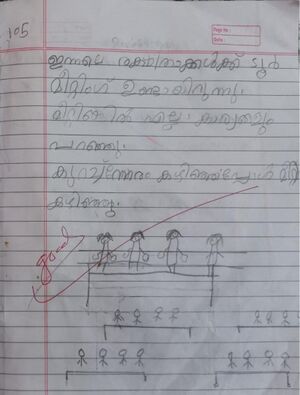 105
Page No :
Date :
ഇന്നലെ രക്ഷിതാക്കൾക്ക് ടൂർ
മീറ്റിംഗ് ഉണ്ടായിരുന്നു.
മീറ്റിങ്ങിൽ എല്ലാ കാര്യങ്ങളും
പറഞ്ഞു.
കുറച്ച് നേരം കഴിഞ്ഞപ്പോൾ മീറ്റി
കഴിഞ്ഞു.
good